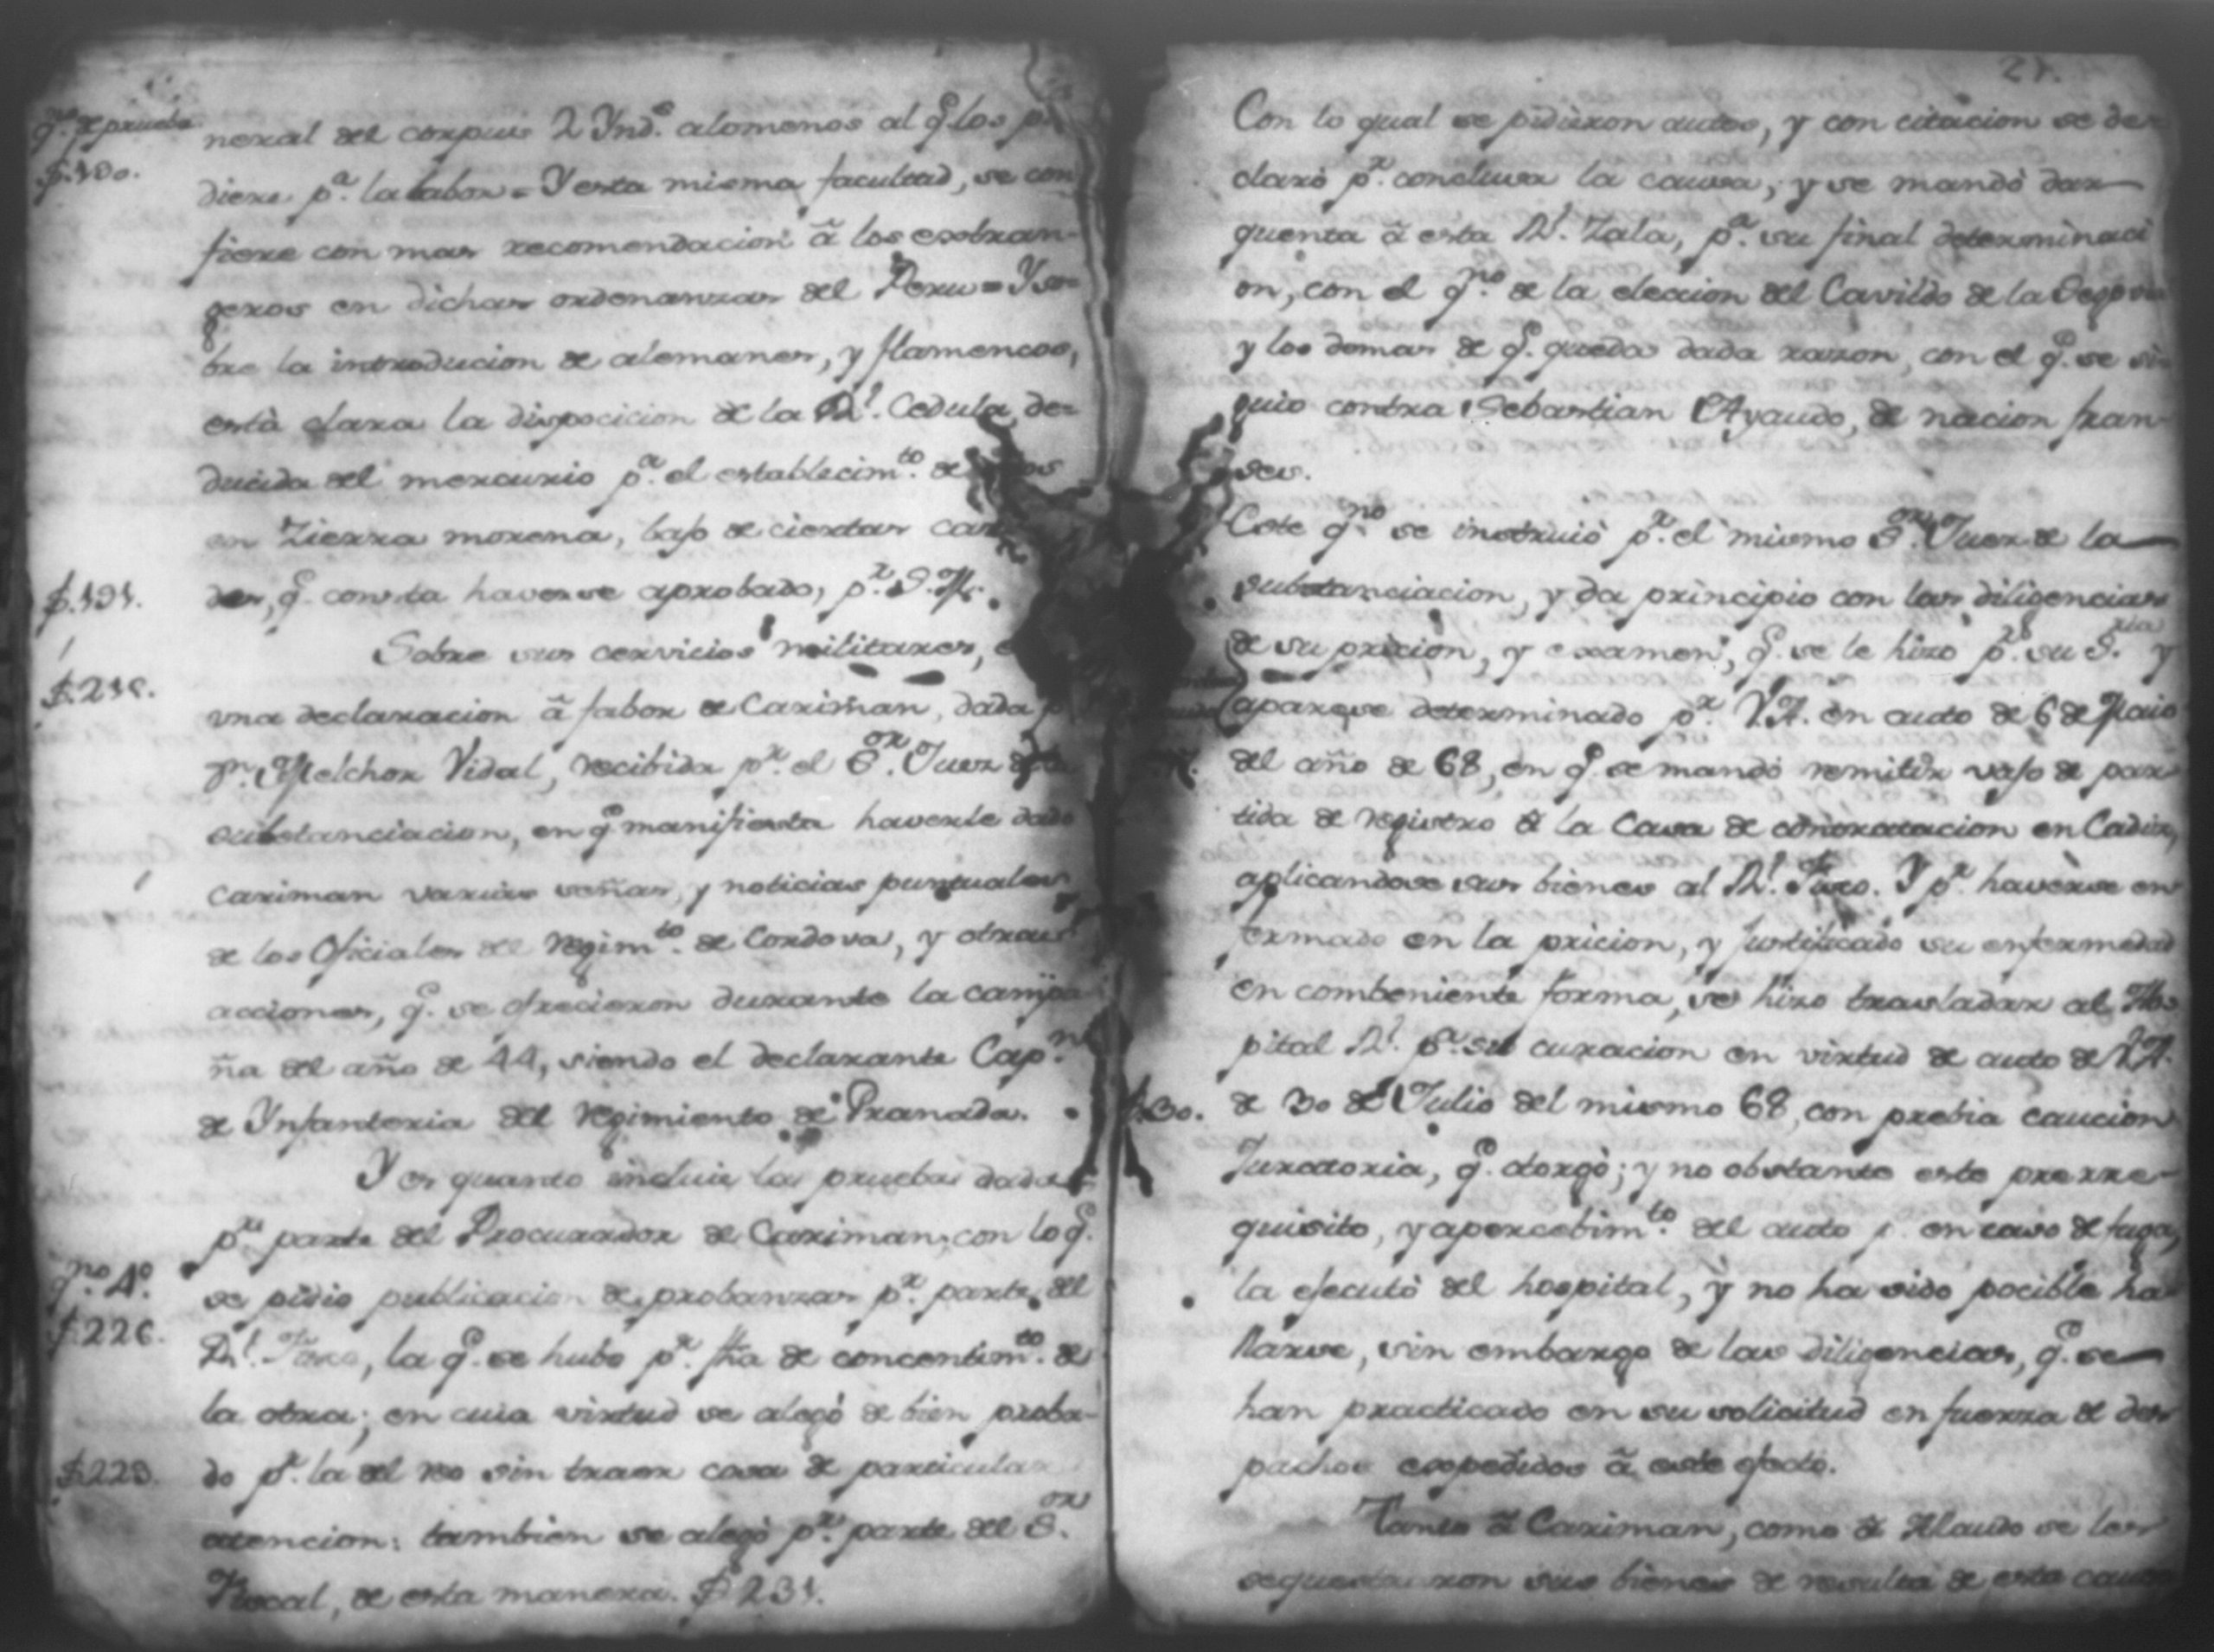 qno. de prueba
f.190.
neral del corpus 2 Ynds. alomenos al q. los pi
diere pa. la labor = Y esta misma facultad, se con
fiere con mas recomendacion â los extran-
geros en dichas ordenanzas del Peru = Y so-
bre la introducion de alemanes, y flamencos,
està clara la dispocicion de la Rl. Cedula, de-
ducida del mercurio pa. el establecimto. de
en Zierra morena, bajo de ciertas
f.191. des, q. consta haverse aprobado, pr. S.M.
Sobre sus cervicios militares,
f.216.
una declaracion â fabor de Cariman, dada
Dn. Melchor Vidal, recibida pr. el Sor. Juez de
substanciacion, en q. manifiesta haverle dado
Cariman varias señas, y noticias puntuales
de los Oficiales del regimto. de Cordova, y otras
acciones, q. se ofrecieron durante la campa
ña del año de 44, siendo el declarante Capn.
de Ynfanteria del regimiento de Granada.
Y es quanto incluie la prueba dada
pr. parte del Procurador de Cariman, con lo q.
qno. 4o. se pidio publicacion de probanzas pr. parte del
f.226. Rl. Fisco, la q. se hubo pr. fha de concentimto. de
la otra; en cuia virtud se alegò de bien proba-
f.229. do pr. la del reo sin traer cosa de particular
atencion: tambien se alegò pr. parte del Sor.
Fiscal, de esta manera. f 231.
21.
Con lo qual se pidieron autos, y con citacion se de
clarò pr. conclusa la causa, y se mandò dar
quenta â esta Rl. Zala, pa. su final determinaci
on, con el qno. de la eleccion del Cavildo de la Segovia
y los demas de q. queda dada razon, con el q. se si-
guio contra Sebastian Ayaudo, de nacion fran-
ses.
Este qno. se instruiò pr. el mismo Sor. Juez de la
substanciacion, y da principio con las diligencias
de su pricion, y examen, q. se le hizo pr. su Sria. y
aparese determinado pr. V.A. en auto de 6 de Maio
del año de 68, en q. se mandò remitir vajo de par-
tida de registro â la Casa de contratacion en Cadiz,
aplicandose sus bienes al Rl. Fisco. Y pr. haverse en
fermado en la pricion, y justificado su enfermedad
en combeniente forma, se hizo trasladar al Hos
pital Rl. pa. su curacion en virtud de auto de V.A.
f.30. de 30 de Julio del mismo 68, con prebia caucion
Juratoria, q. otorgò; y no obstante este prerre-
quisito, y apercebimto. del auto pa. en caso de fuga,
la ejecutò del hospital, y no ha sido pocible ha
llarse, sin embargo de las diligencias, q. se
han practicado en su solicitud en fuerza de des
pachos expedidos â este efecto.
Tanto â Cariman, como â Alaudo se les
sequestraron sus bienes de resulta de esta causa